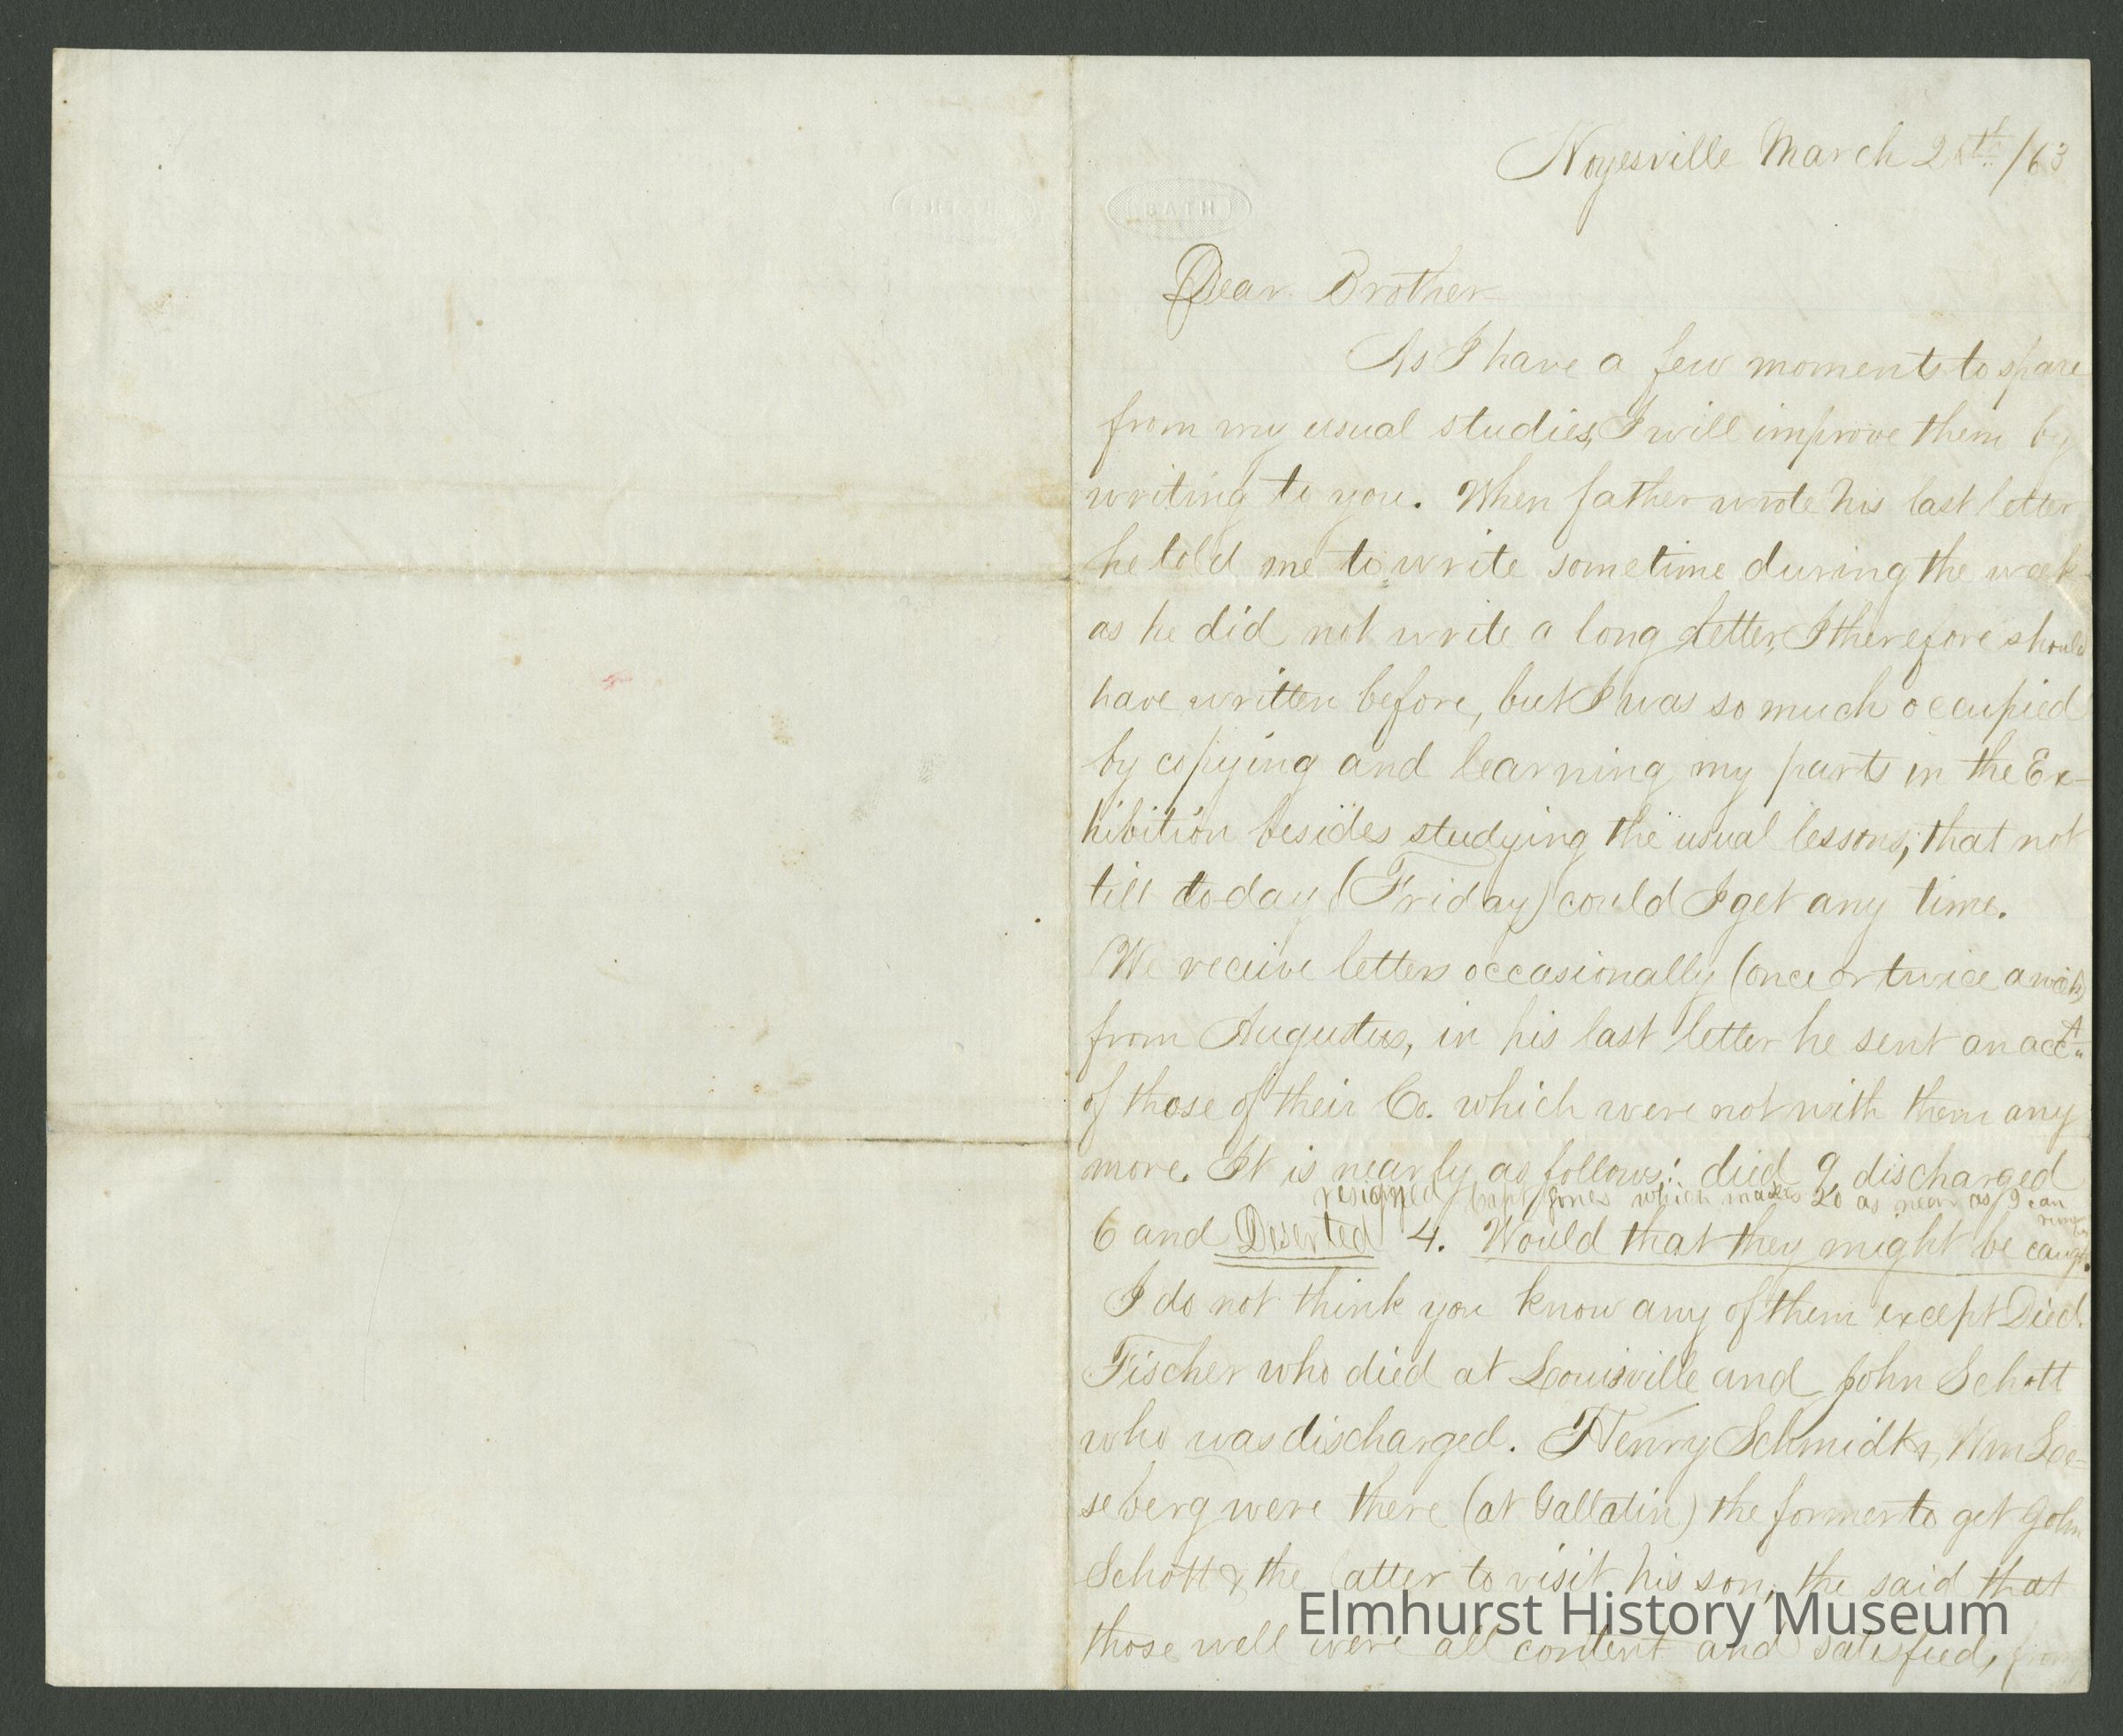 Noyesville March 2 th /63
BATH
Dear Brother
As I have a few moments to spare
from my usual studies, I will improve them by
writing to you. When father wrote his last letter
he told me to write sometime during the week
as he did not write a long letter, I therefore should
have written before, but I was so much occupied
by copying and learning my parts in the Ex-
hibition besides studying the usual lessons, that not
till to day (Friday) could I get any time.
We receive letters occasionally (once or twice a week)
from Augustus, in his last letter he sent an acct.
of those of their Co. which were not with them any
more. It is nearly as follows: died 9, discharged
resigned Capt Jones which makes 20 as near as I can
6 and Deserted 4. Would that they might be caught.
I do not think you know any of them except Died.
Fischer who died at Louisville and John Schott
who was discharged. Henry Schmidt &, Wm Loe-
seberg were there (at Gallatin) the former to get John
Schott & the latter to visit his son, the said that
those well were all content and satisfied,
Elmhurst History Museum